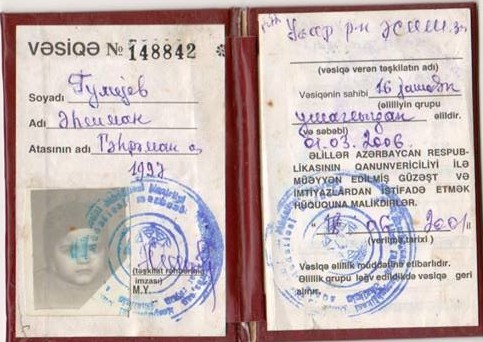 VƏSİQƏ № 148842 *
Soyadı Гулијев
Adı Әһлиман
Atasının adı Гәһрәман о.
1997
(təşkilat rəhbərinin
imzası)
M.Y.
Уҹар рн ӘСИШ
(vəsiqə verən təşkilatın adı)
Vəsiqənin sahibi 16 јашадәк
(əlilliyin qrupu
ушаглыгдан əlildir.
(və səbəbi)
01.03.2006.
ƏLİLLƏR AZƏRBAYCAN RESPUB-
LİKASININ QANUNVERİCİLİYİ İLƏ
MÜƏYYƏN EDİLMİŞ GÜZƏŞT VƏ
İMTİYAZLARDAN İSTİFADƏ ETMƏK
HÜQUQUNA MALİKDİRLƏR.
06 2001
(verilmə tarixi)
Vəsiqə əlillik müddətinə etibarlıdır.
Əlillik qrupu ləğv edildikdə vəsiqə geri
alınır.